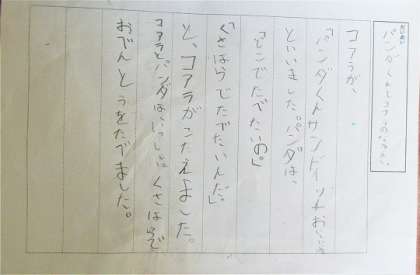 パンダくんとコアラの
コアラが、
「パンダくんサンドイッチおい
といいました。パンダは、
「どこでたべたいの。」
「くさはらでたべたいんだ。」
と、コアラがこたえました。
コアラとパンダは、いっしょにくさはらで
おべんとうをたべました。